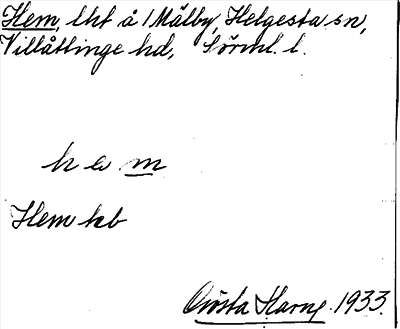 Hem, lht å 1 Mälby, Helgesta sn,
Villåttinge hd, Sörml. l.
h e m
Hem kb
Gösta Harne 1933.